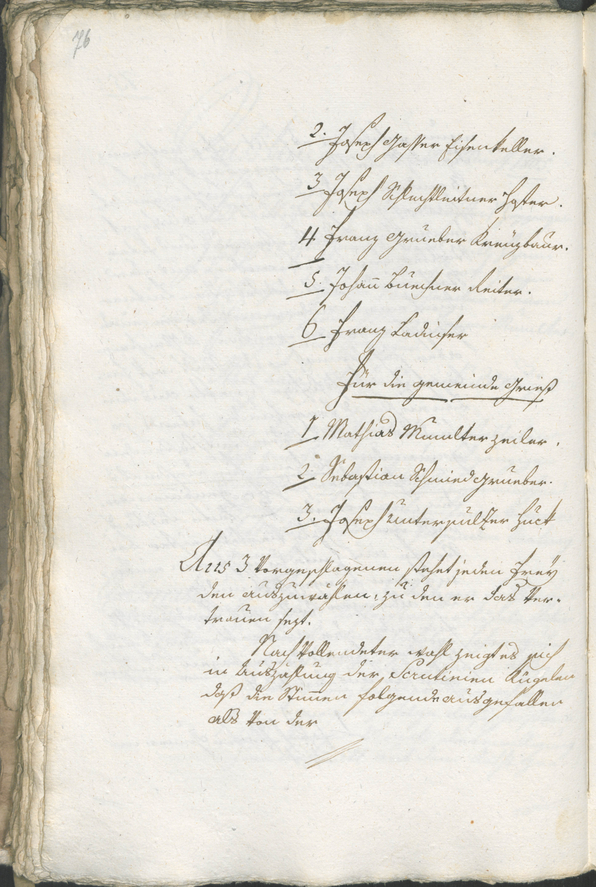 76
2. Joseph Gasser Eisenkeller.
3 Joseph Schlechtleitner Hofer.
4 Franz Grueber Kreuzbaur.
5. Johann Buechner Reiter.
6 Franz Ladinser
Für die gemeinde Grieß
1 Mathias Mumelter zeiler.
2 Sebastian Schmied grueber.
3. Joseph Unterpulzer Huck
Aus 3 Vorgeschlagenen stehet jeden Frey
den auszuwählen, zu den er das Ver-
trauen sezt.
Nach Vollendeter wahl zeigt es sich
in Auszählung der Scrutinien Kugelen
daß die Stimen folgende ausgefallen
als Von der